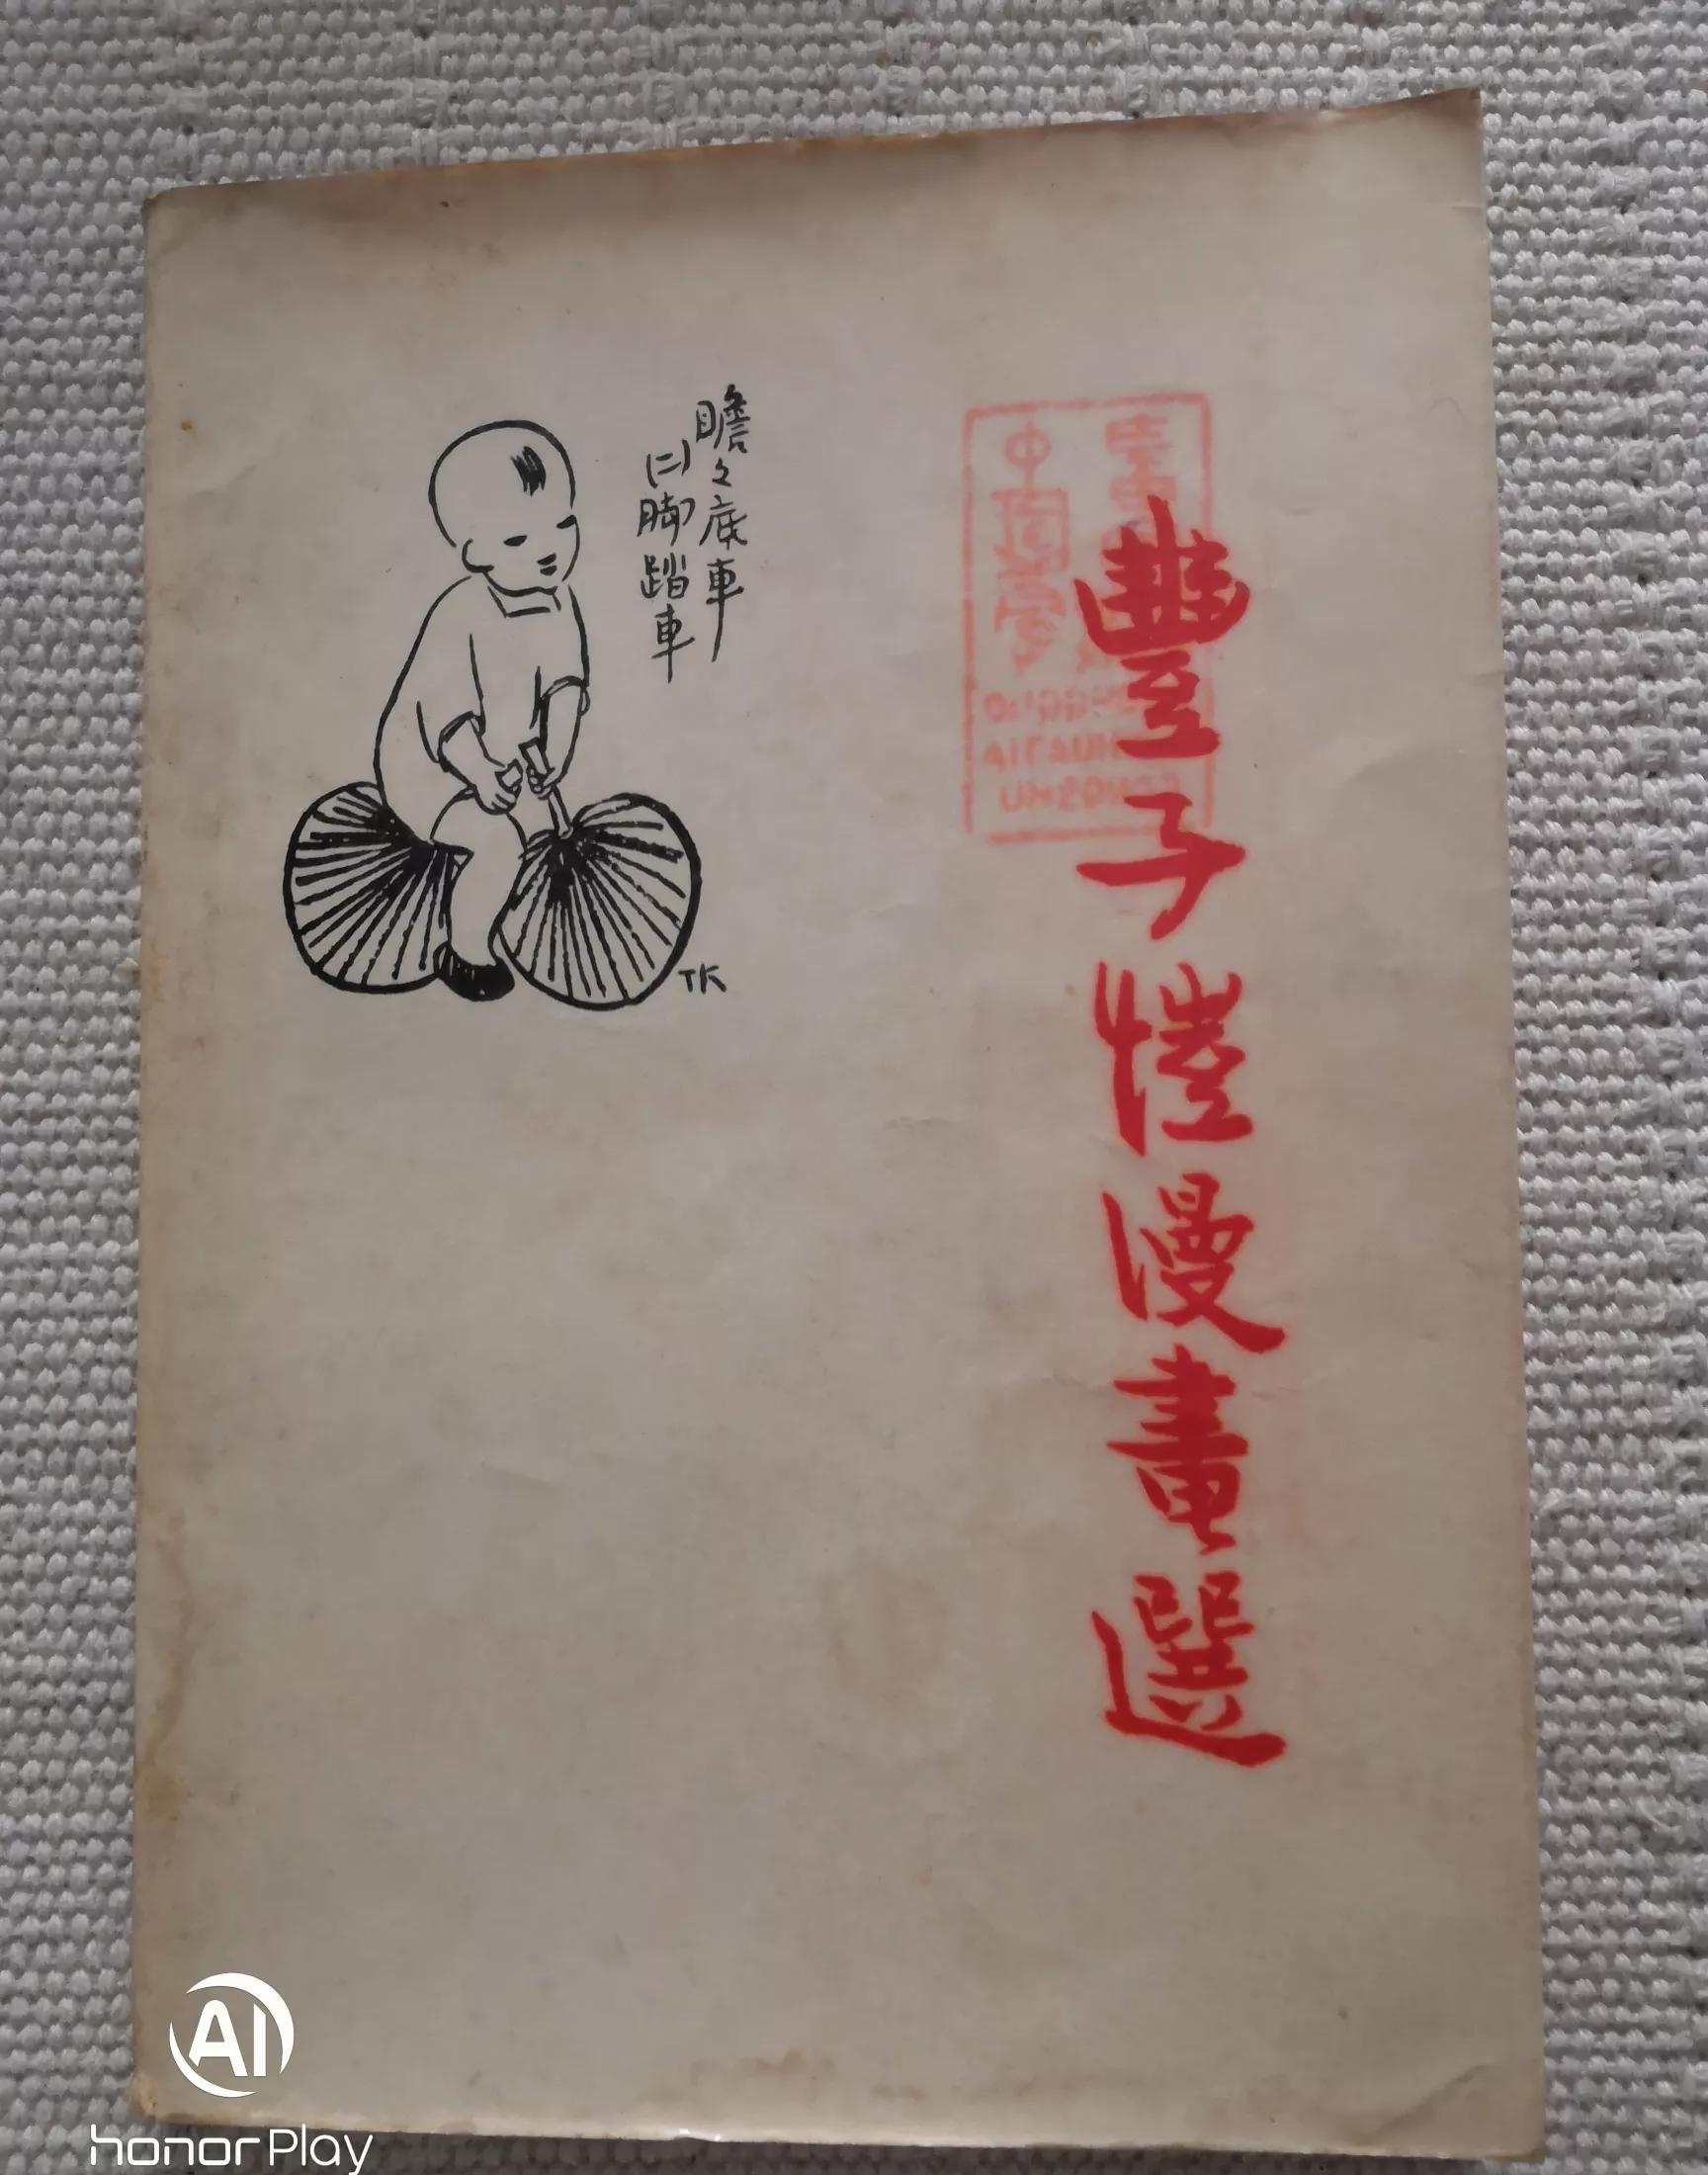 豐子愷漫畫選
瞻々底車
(二)脚踏車
TK
AI
honor Play